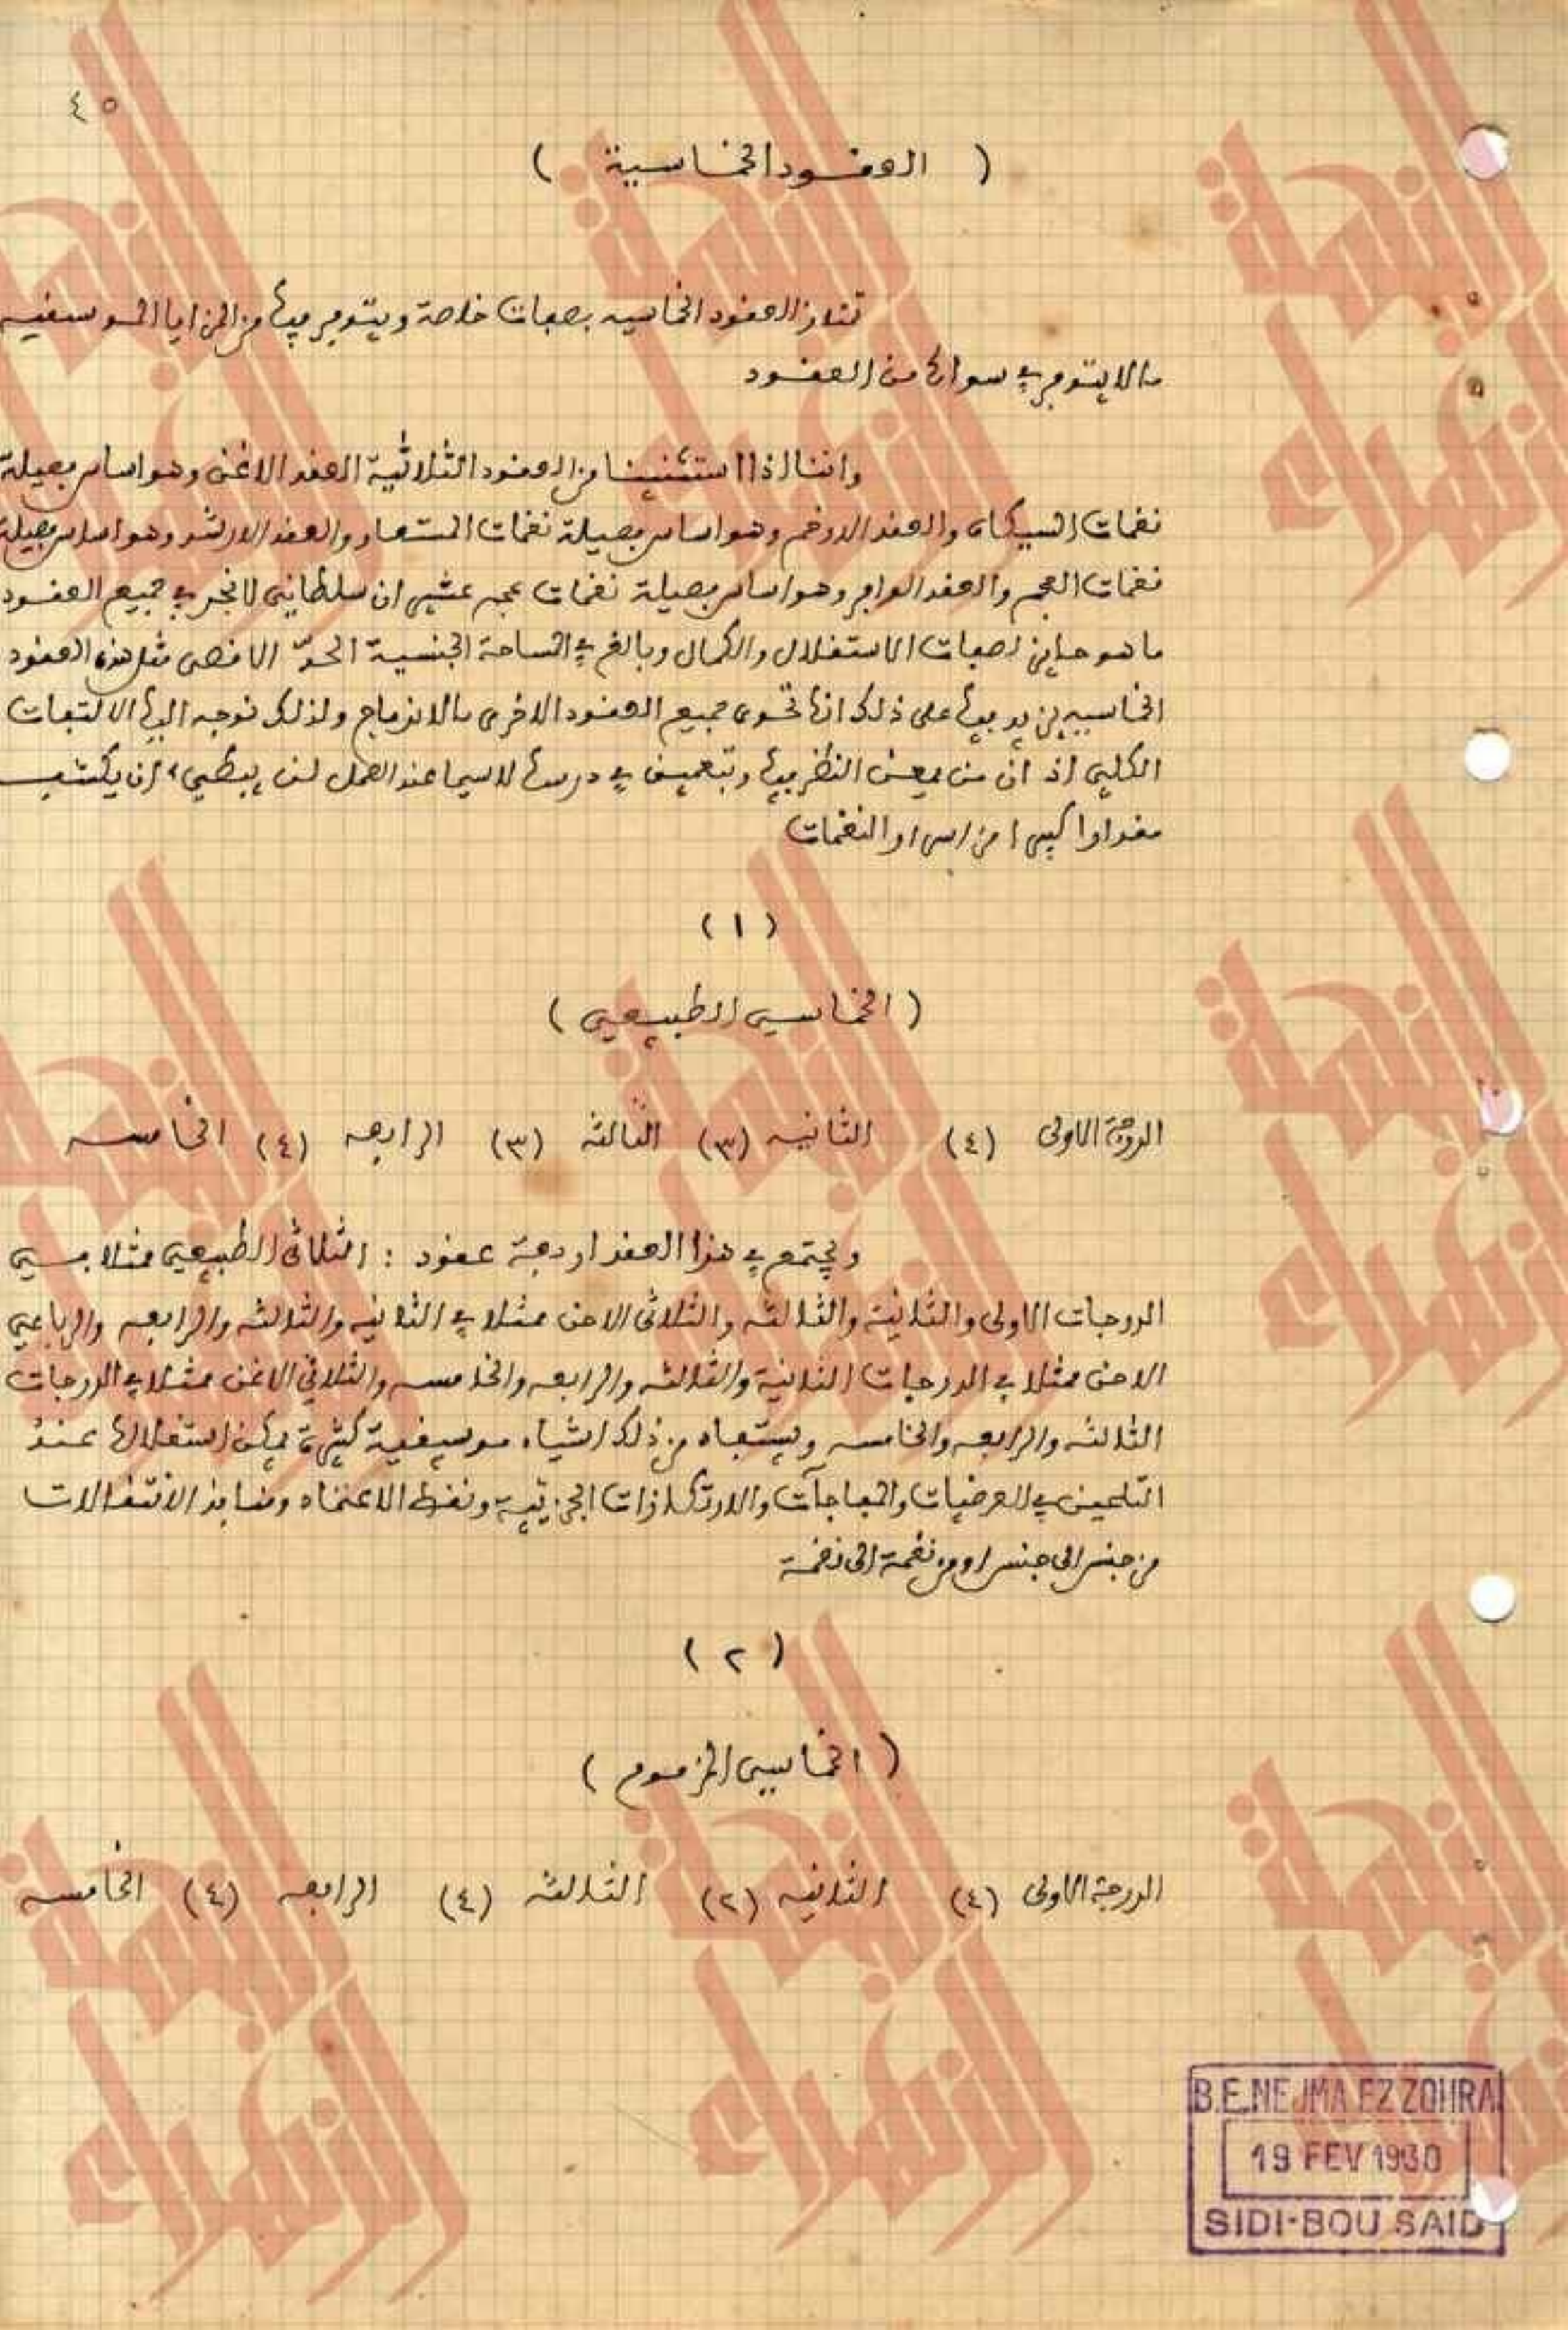 ٤٥
( العقود الخماسية )
تمتاز العقود الخماسيه بصفات خاصة ويتوفر فيها من المزايا الموسيقيه
مالا يتوفر في سواها من العقود
واننا اذا استثنينا من العقود الثلاثية العقد الاغن وهو اساس فصيلة
نغمات السيكاه والعقد الارخم وهو اساس فصيلة نغمات المستعار والعقد الارشد وهو اساس فصيلة
نغمات العجم والعقد الوافر وهو اساس فصيلة نغمات عجم عشيران سلطاني لا نجد في جميع العقود
ما هو حايز لصفات الاستقلال والكمال وبالغ في المساحة الجنسية الحدّ الاقصى مثل هذه العقود
الخماسيه يزيد فيها على ذلك انها تحوى جميع العقود الاخرى بالاندماج ولذلك نوجه اليها الالتفات
الكلي اذ ان من يمعن النظر فيها ويتعمق في درسها لاسيما عند العمل لن يبطيء ان يكتشف
مقدارا كبيرا من اسرار النغمات
(١)
( الخماسي الطبيعي )
الدرجة الاولى (٤) الثانيه (٣) الثالثه (٣) الرابعه (٤) الخامسه
ويجتمع في هذا العقد اربعة عقود : الثلاثى الطبيعي ممثلا في
الدرجات الاولى والثانية والثالثه والثلاثى الاحن ممثلا في الثانيه والثالثه والرابعه والرباعي
الاحن ممثلا في الدرجات الثانية والثالثه والرابعه والخامسه والثلاثي الاغن ممثلا في الدرجات
الثالثه والرابعه والخامسه ويستفاد من ذلك اشياء موسيقية كثيرة يمكن استغلالها عند
التلحين في العرضيات والمفاجآت والارتكازات الجزئية ونقط الاعتماد ومنافذ الانتقالات
من جنس الى جنس او من نغمة الى نغمة
(٢)
( الخماسي المزموم )
الدرجة الاولى (٤) الثانيه (٢) الثالثه (٤) الرابعه (٤) الخامسه
B.E.NEJMA EZZOHRA
19 FEV 1930
SIDI-BOU SAID